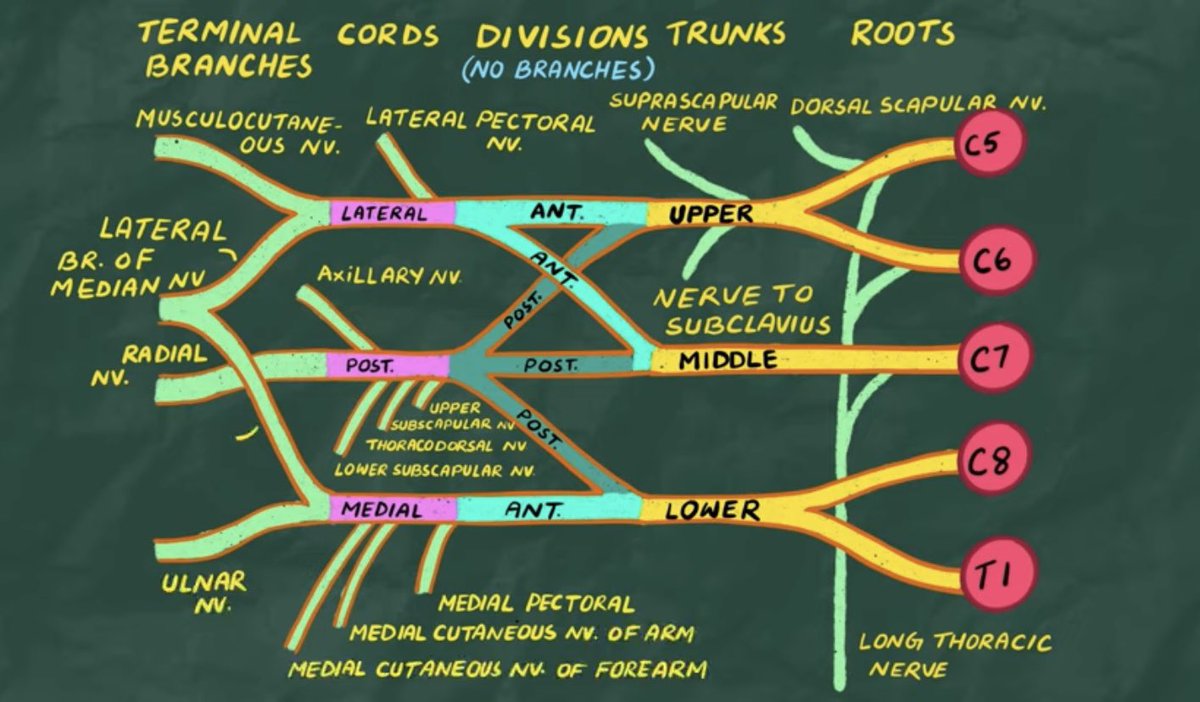 TERMINAL
BRANCHES
CORDS
DIVISIONS
(NO BRANCHES)
TRUNKS
ROOTS
MUSCULOCUTANE-
OUS NV.
LATERAL PECTORAL
NV.
SUPRASCAPULAR
NERVE
DORSAL SCAPULAR NV.
C5
LATERAL
ANT.
UPPER
LATERAL
BR. OF
MEDIAN NV
C6
ANT.
AXILLARY NV.
POST.
NERVE TO
SUBCLAVIUS
RADIAL
NV.
POST.
POST.
MIDDLE
C7
UPPER
SUBSCAPULAR NV
THORACODORSAL NV
LOWER SUBSCAPULAR NV.
POST.
C8
MEDIAL
ANT.
LOWER
T1
ULNAR
NV.
MEDIAL PECTORAL
MEDIAL CUTANEOUS NV. OF ARM
MEDIAL CUTANEOUS NV. OF FOREARM
LONG THORACIC
NERVE